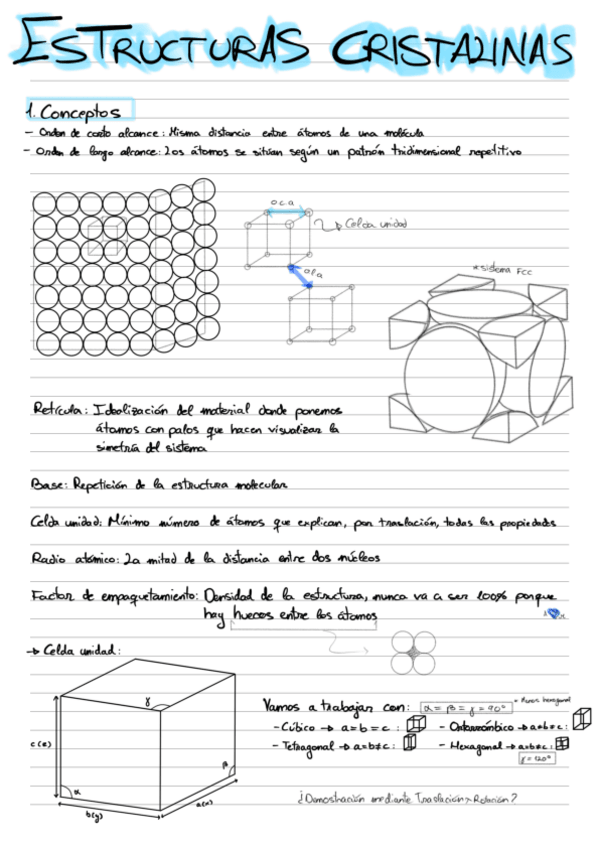 ESTRUCTURAS CRISTALINAS
1. Conceptos
- Orden de corto alcance: Misma distancia entre átomos de una molécula
- Orden de largo alcance: Los átomos se sitúan según un patrón tridimensional repetitivo
o.c.a
Celda unidad
o.l.a
* sistema FCC
Retícula: Idealización del material donde ponemos
átomos con palos que hacen visualizar la
simetría del sistema
Base: Repetición de la estructura molecular
Celda unidad: Mínimo número de átomos que explican, por traslación, todas las propiedades
Radio atómico: La mitad de la distancia entre dos núcleos
Factor de empaquetamiento: Densidad de la estructura, nunca va a ser 100% porque
hay huecos entre los átomos
→ Celda unidad:
γ
c(z)
α
β
b(y)
a(x)
Vamos a trabajar con: α = β = γ = 90° * Menos hexagonal
- Cúbico → a=b=c :
- Ortorrómbico → a≠b≠c :
- Tetragonal → a=b≠c :
- Hexagonal → a=b≠c :
γ=120°
¿Demostración mediante Traslación y Rotación?